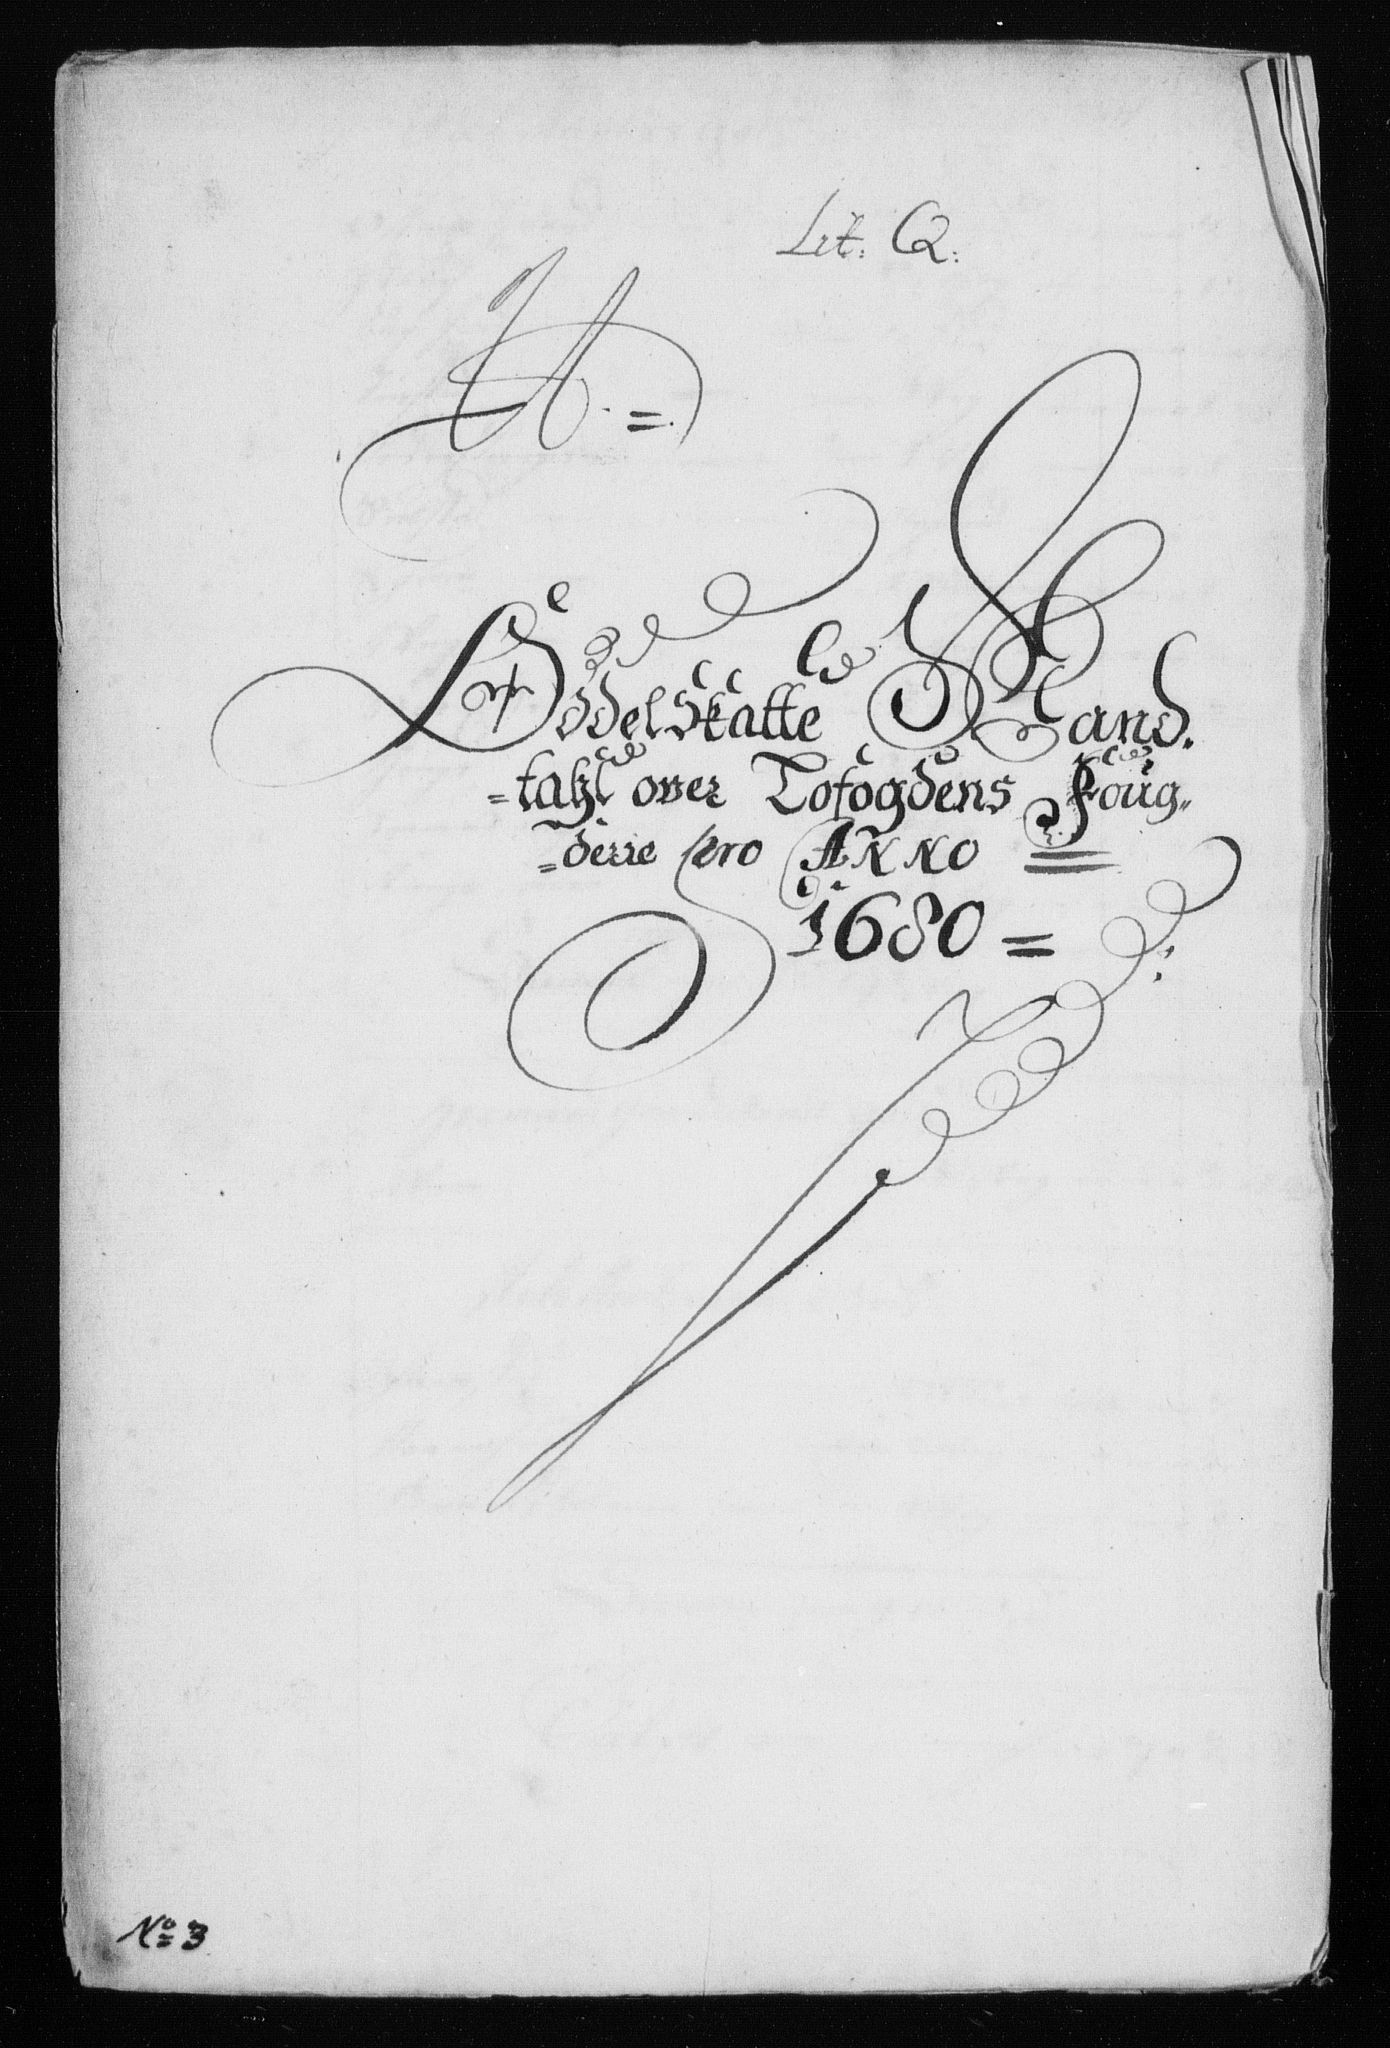 Lit: Q:
H. =.
Odelskatte Mand.
=tahl over Tofogdens Foug-
=derie pro ANNO
1680 =
No 3